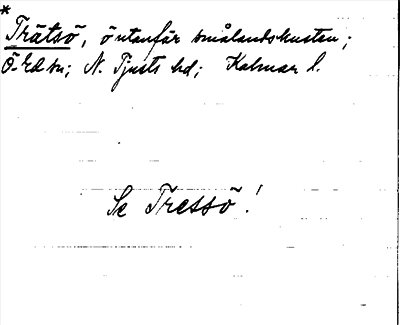 *
Trätsö, ö utanför smålandskusten;
Ö. Ed sn; N. Tjusts hd; Kalmar l.
Se Tressö!